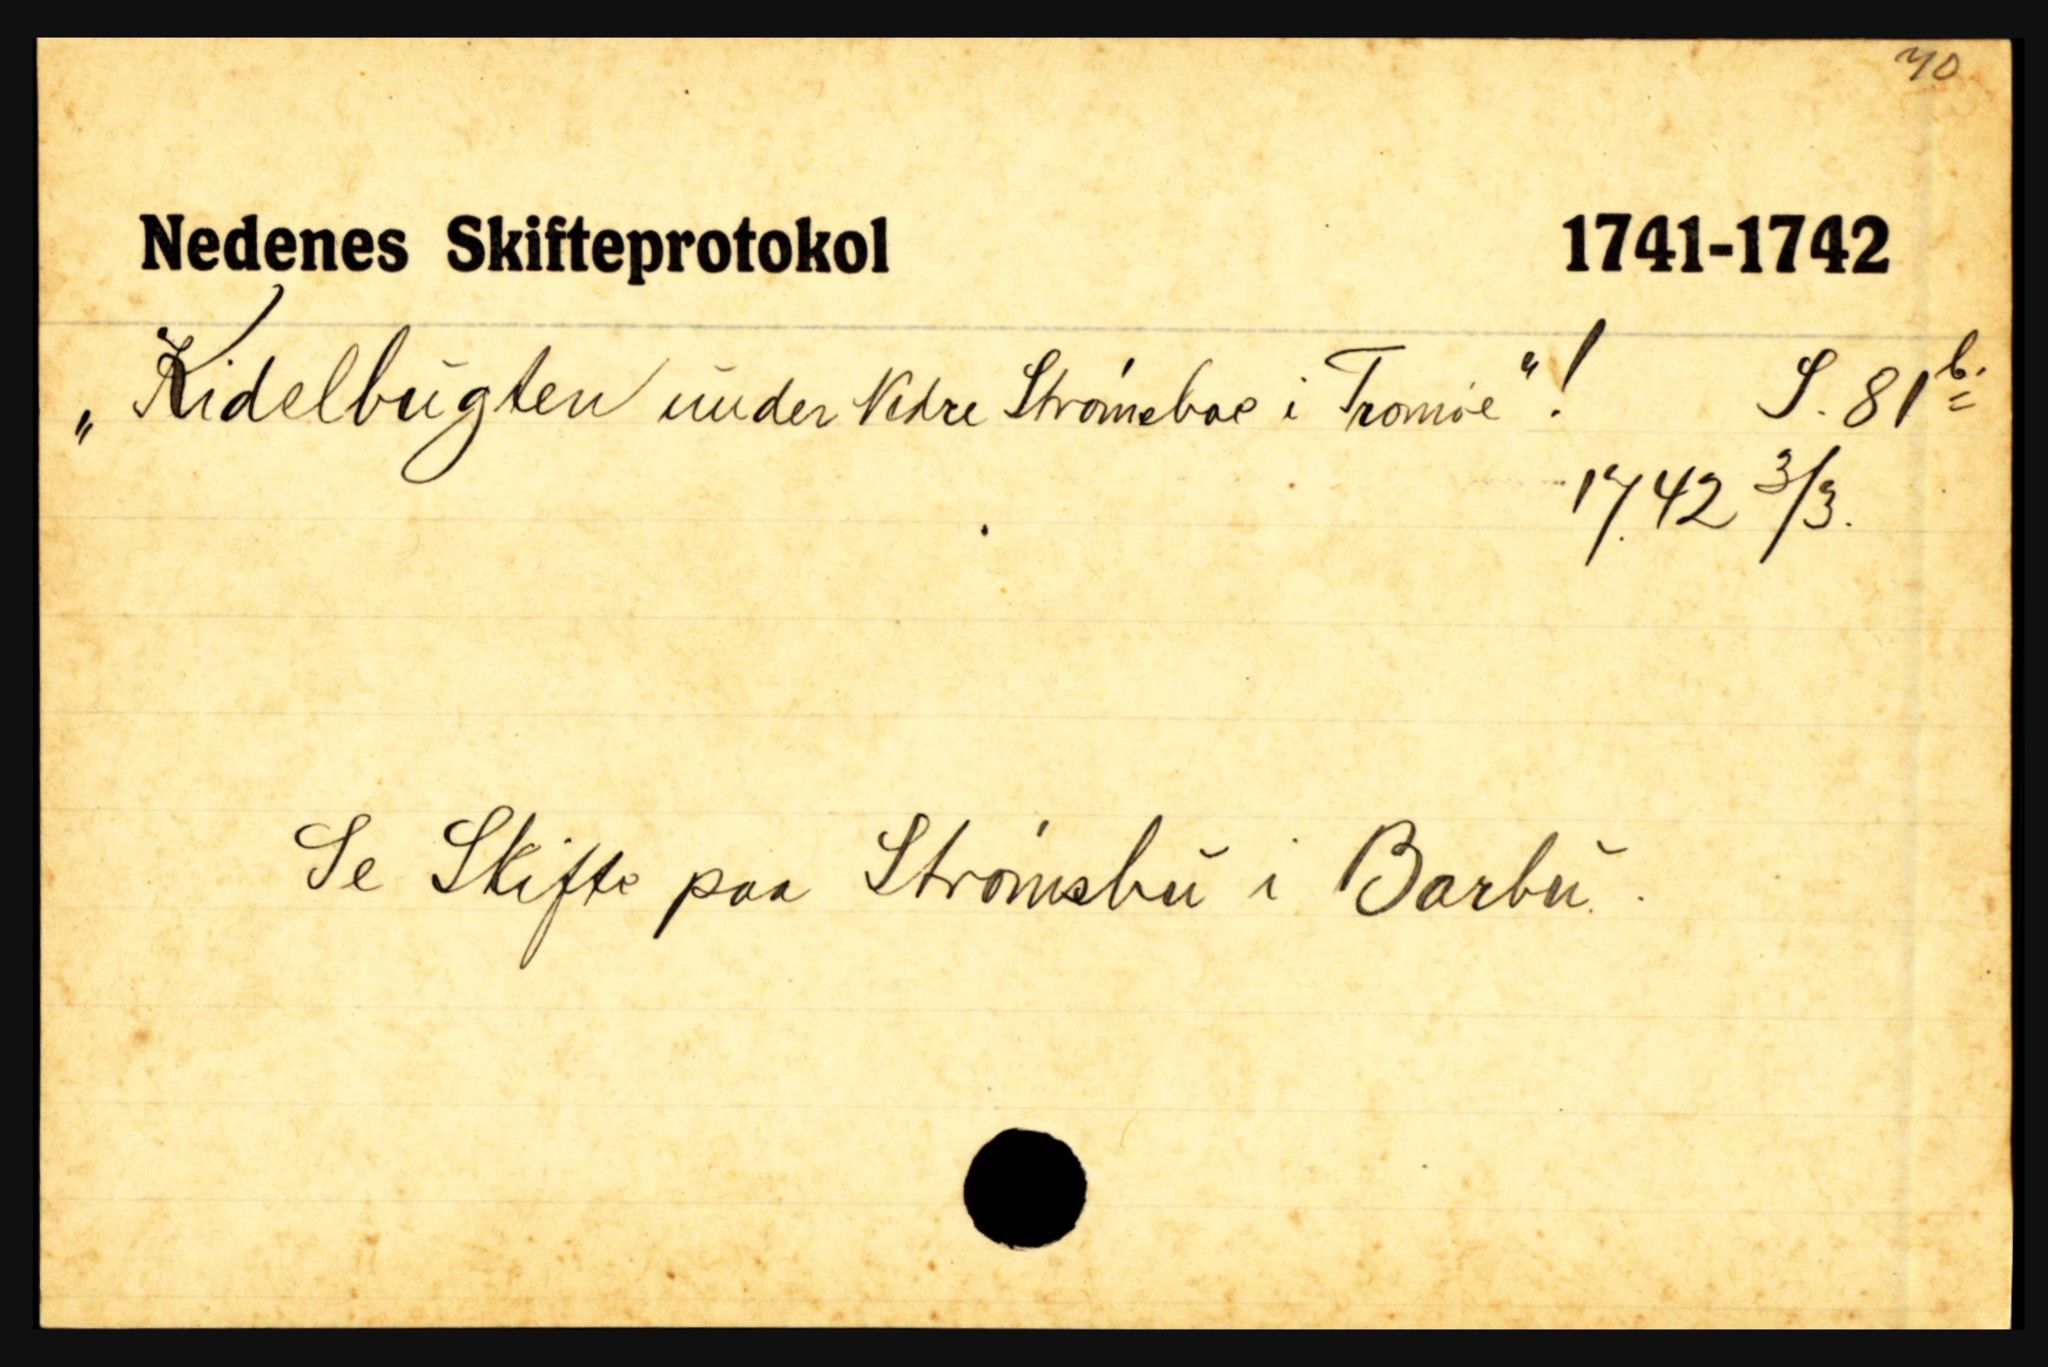 70
Nedenes Skifteprotokol 1741-1742
„Kidelbugten under Nedre Strømsboe i Tromøe“! S. 81 b.
1742 3/3.
Se Skifte paa Strømsbu i Barbu.